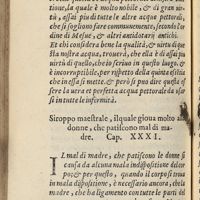 tione, la quale è molto nobile, & di gran vir
tù, assai piu di tutte le altre acque pettorali,
che si sogliono fare communemente, secondo l'or
dine di Mesue, & altri antidotarij antichi.
Et chi considera bene la qualità, & virtù di que
sta nostra acqua, trouerà che ella è assai di piu
virtù di quello, che io scriuo in questo luogo. &
è incorruttibile, per rispetto della quinta essentia
che in essa si mette. & però si puo dire questa es
sere la uera et perfetta acqua pettorale da usar
si in tutte le infermità.
Siroppo maestrale, il quale gioua molto alle
donne, che patiscono mal di ma
dre. Cap. XXXI.
IL mal di madre, che patiscono le donne si
causa da alcuna mala indispositione del cor
po; & per questo, quando il corpo si troua
in mala dispositione, è necessario ancora, che la
madre, che ha ligamento con tutte le parti del